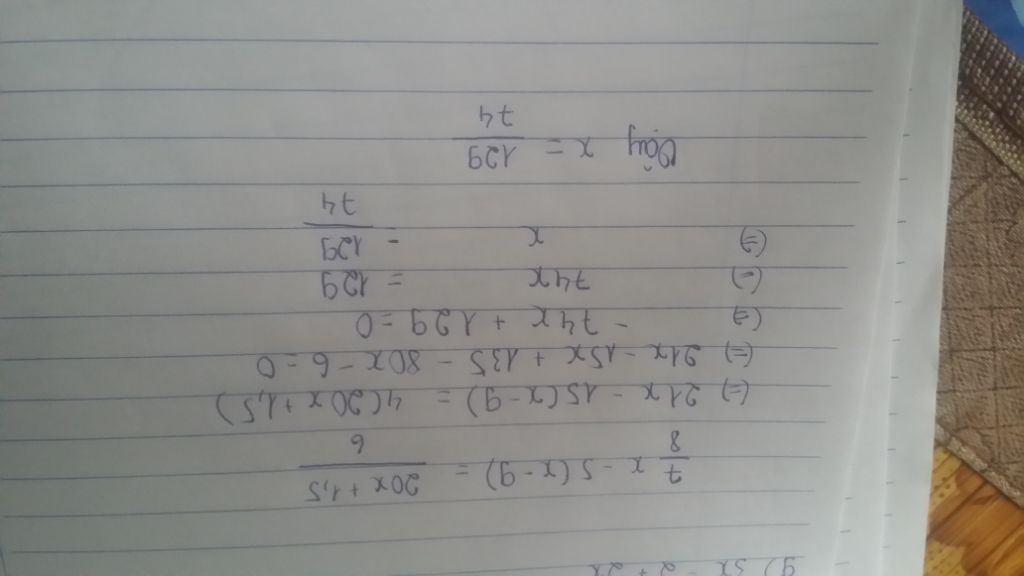 g) 3x - 2 + 2x
7/8 x - 5(x-9) = (20x + 1,5)/6
(=) 21x - 15(x-9) = 4(20x + 1,5)
(=) 21x - 15x + 135 - 80x - 6 = 0
(=) - 74x + 129 = 0
(=) 74x = 129
(=) x = 129/74
Vậy x = 129/74